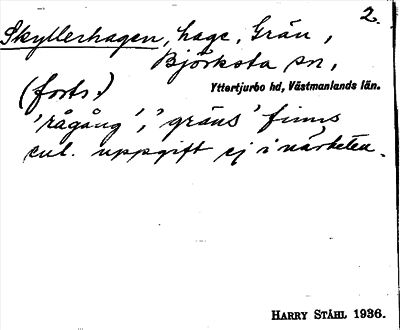 2.
Skyllerhagen, hage, Grän,
Björksta sn,
Yttertjurbo hd, Västmanlands län.
(forts.)
'rågång', 'gräns' finns
enl. uppgift ej i närheten.
HARRY STÅHL 1936.